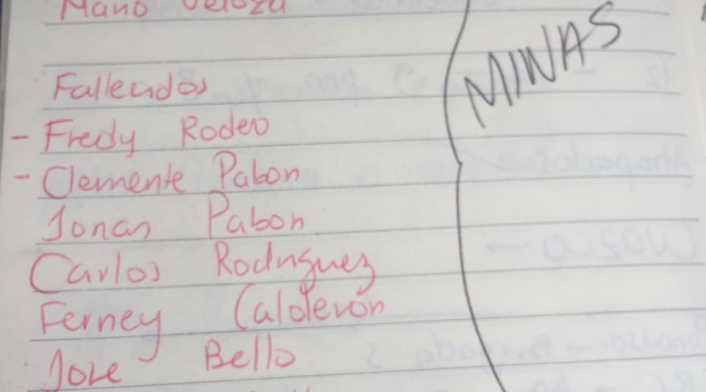 Fallecidos
MINAS
- Fredy Rodeo
- Clemente Pabon
Jonas Pabon
Carlos Rodriguez
Ferney Calderón
Jose Bello